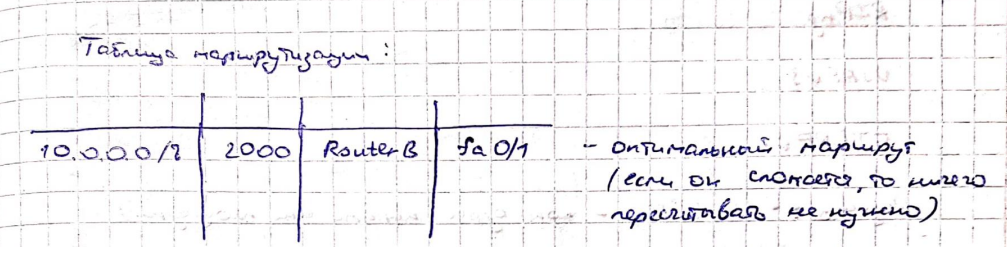 Таблица маршрутизации:
10.0.0.0/8 2000 RouterB fa 0/1 - оптимальный маршрут
(если он сломается, то ничего
пересчитывать не нужно)